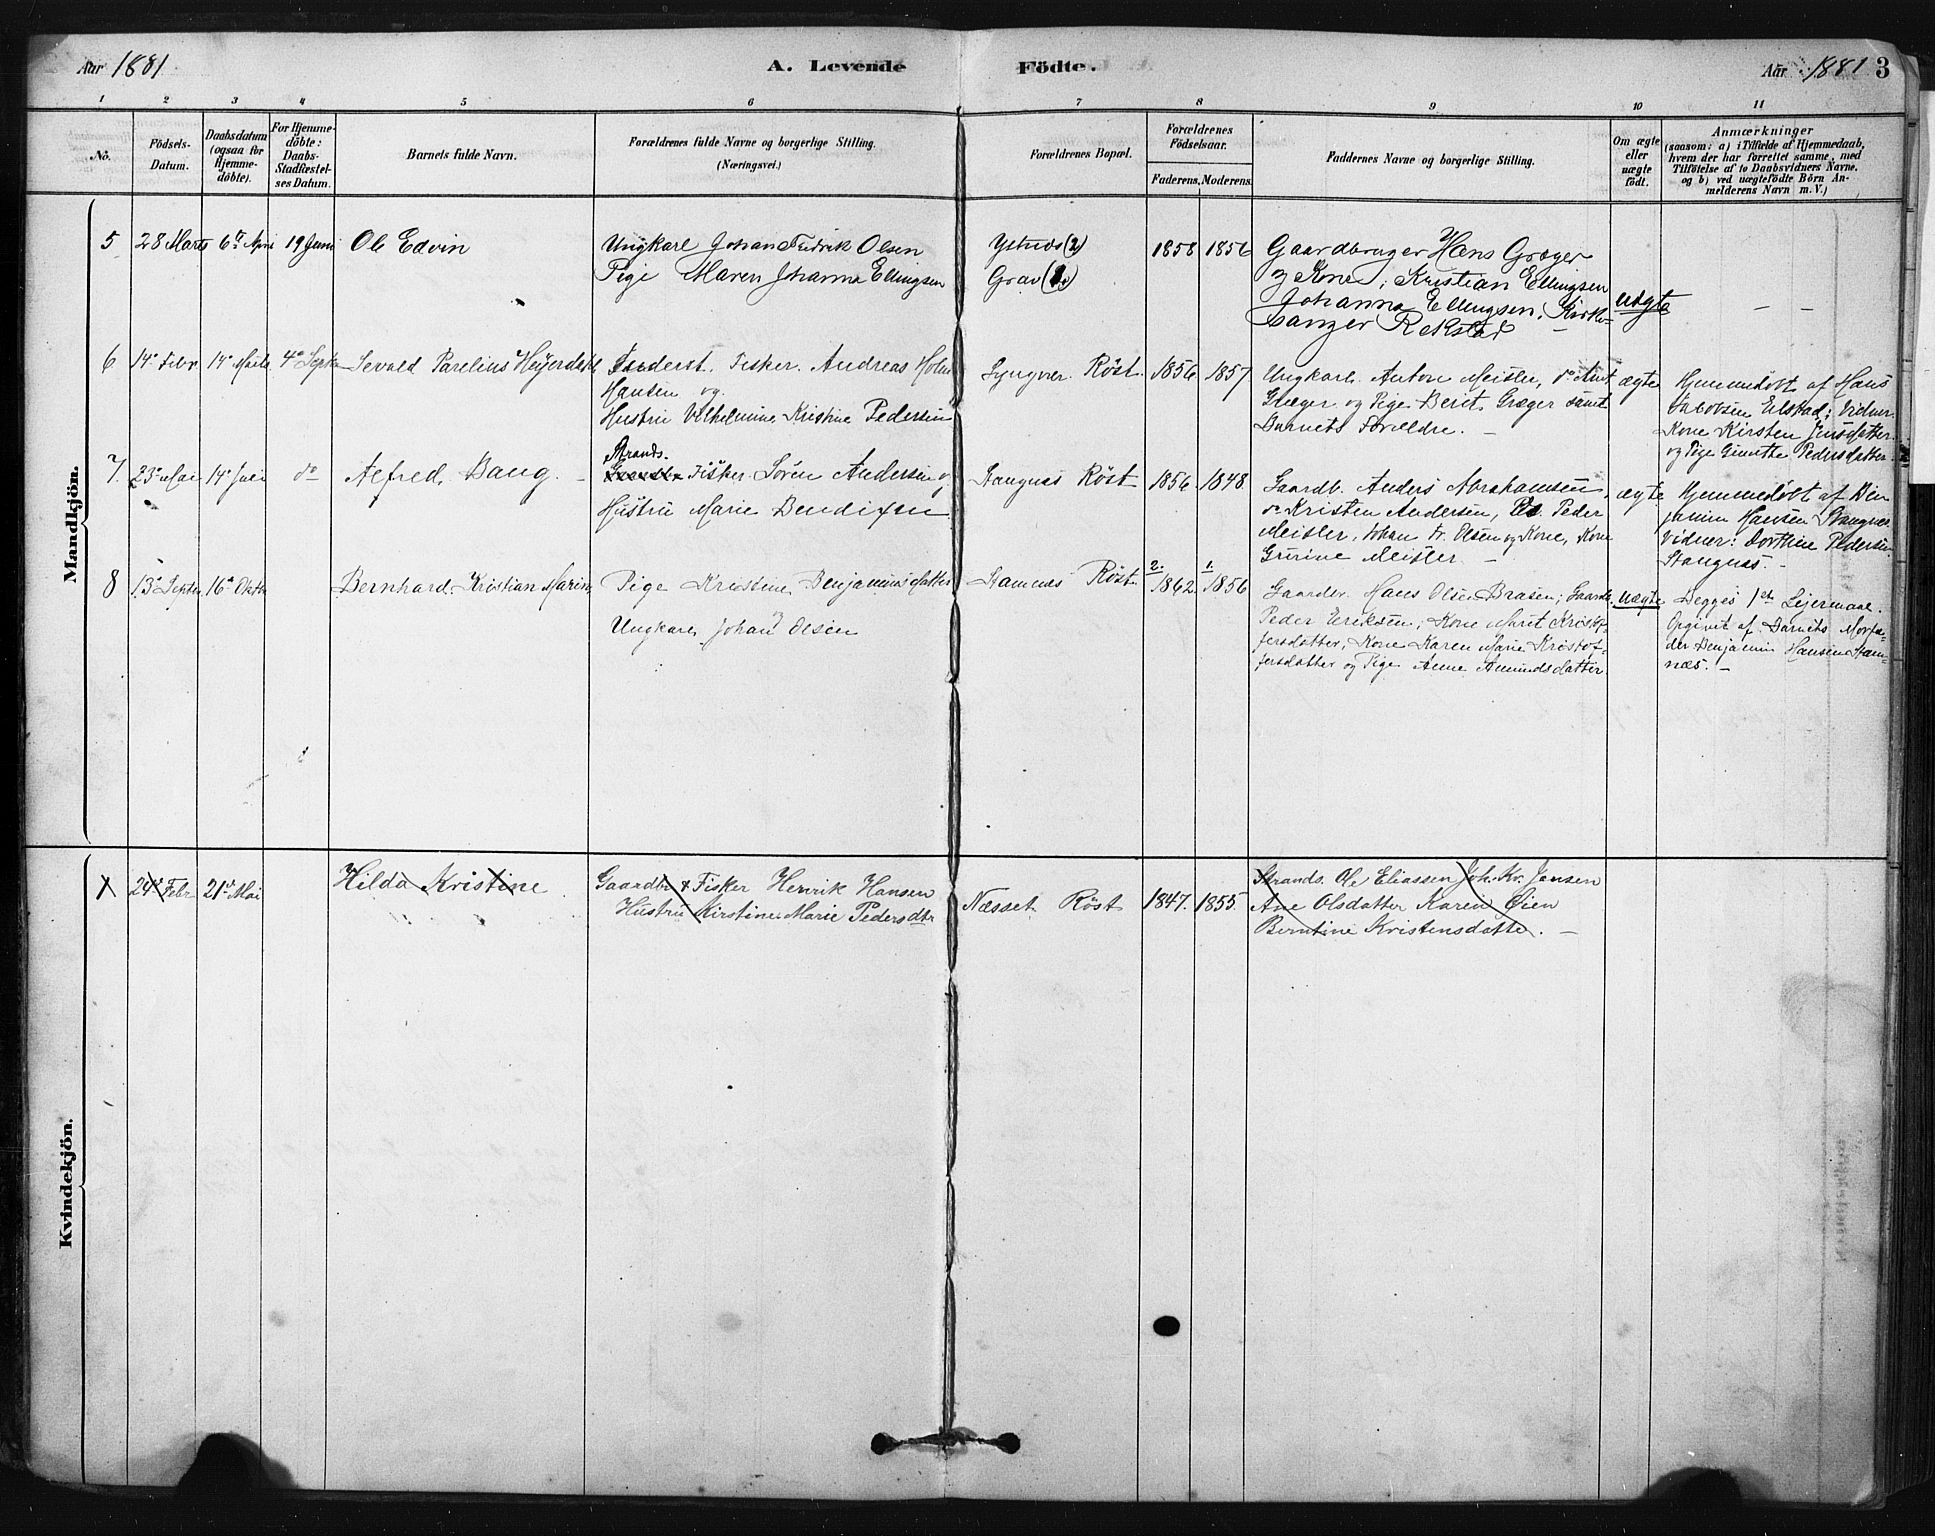 Aar 1881
A. Levende Födte.
Aar 1881 3
1 2 3 4 5 6 7 8 9 10 11
No.
Födsels-
Datum.
Daabsdatum
(ogsaa for
Hjemme-
döbte).
For Hjemme-
döbte:
Daabs-
Stadfæstel-
ses Datum.
Barnets fulde Navn.
Forældrenes fulde Navne og borgerlige Stilling.
(Næringsvei.)
Forældrenes Bopæl.
Forældrenes
Födselsaar.
Faderens. Moderens.
Faddernes Navne og borgerlige Stilling.
Om ægte
eller
uægte
födt.
Anmærkninger
(saasom: a) i Tilfælde af Hjemmedaab,
hvem der har forrettet samme, med
Tilföielse af to Daabsvidners Navne,
og b) ved uægtefödte Börn An-
melderens Navn m. V.)
Mandkjön.
5 28 Marts 6te April 19 Juni Ole Edvin
Ungkarl Johan Fredrik Olsen
Pige Maren Johanna Ellingsen
Ystnes (2)
Grav (1.)
1858 1856
Gaardbruger Hans Græger
og Kone; Kristian Ellingsen
Johanna Ellingsen, Kirke-
sanger Rekstad
uægte
6 14de Febr. 14de Marts 4de Septbr Sevald Parelius Heyerdahl
Fisker Andreas Holm
Hansen og
Hustru Vilhelmine Kristine Pedersen
Lyngver Röst 1856 1857
Ungkarl Anton Meisler, do Ant.
Græger og Pige Berit Græger samt
Barnets Forældre.
ægte
Hjemmedøbt af Hans
Jacobsen Eilstad; Vidner:
Kone Kirsten Jensdatter
og Pige Ginette Pedersdatter.
7. 23de Mai 14de Juli do Alfred Bang.
Strands.
Fisker Sören Andersen og
Hustru Marie Bendixen
Stangnæs Röst 1856 1848
Gaardb. Anders Abrahamsen,
do Kristen Andersen, Peder
Meisler, Johan Fr. Olsen og Kone, Kone
Gurine Meisler.
ægte
Hjemmedøbt af Ben-
jamin Hansen Stangnæs.
Vidner: Dorthea Pedersen
Stangnæs.
8 13de Septbr. 16de Oktbr Bernhard Kristian Marius
Pige Kristine Benjaminsdatter
og
Ungkarl Johan Olsen
Stamnæs Röst 2. 1862. 1. 1856
Gaardbr. Hans Olsen Brasen; Gaardb.
Peder Eriksen; Kone Marit Kristof-
fersdatter; Kone Karen Marie Kristof-
fersdatter og Pige Anne Amundsdatter.
uægte
Begges 1ste Lejermaal.
Opgivet af Barnets Morfa-
der Benjamin Hansen Stam-
næs.
Kvindekjön.
1 24de Febr 21de Mai Hilda Kristine
Gaardbr & Fisker Henrik Hansen
Hustru Kirstine Marie Pedersdtr
Næsset Röst 1847. 1855
Strands. Ole Eliassen Joh. Kr. Jensen
Ane Olsdatter Karen Øien
Berntine Kristensdatter.